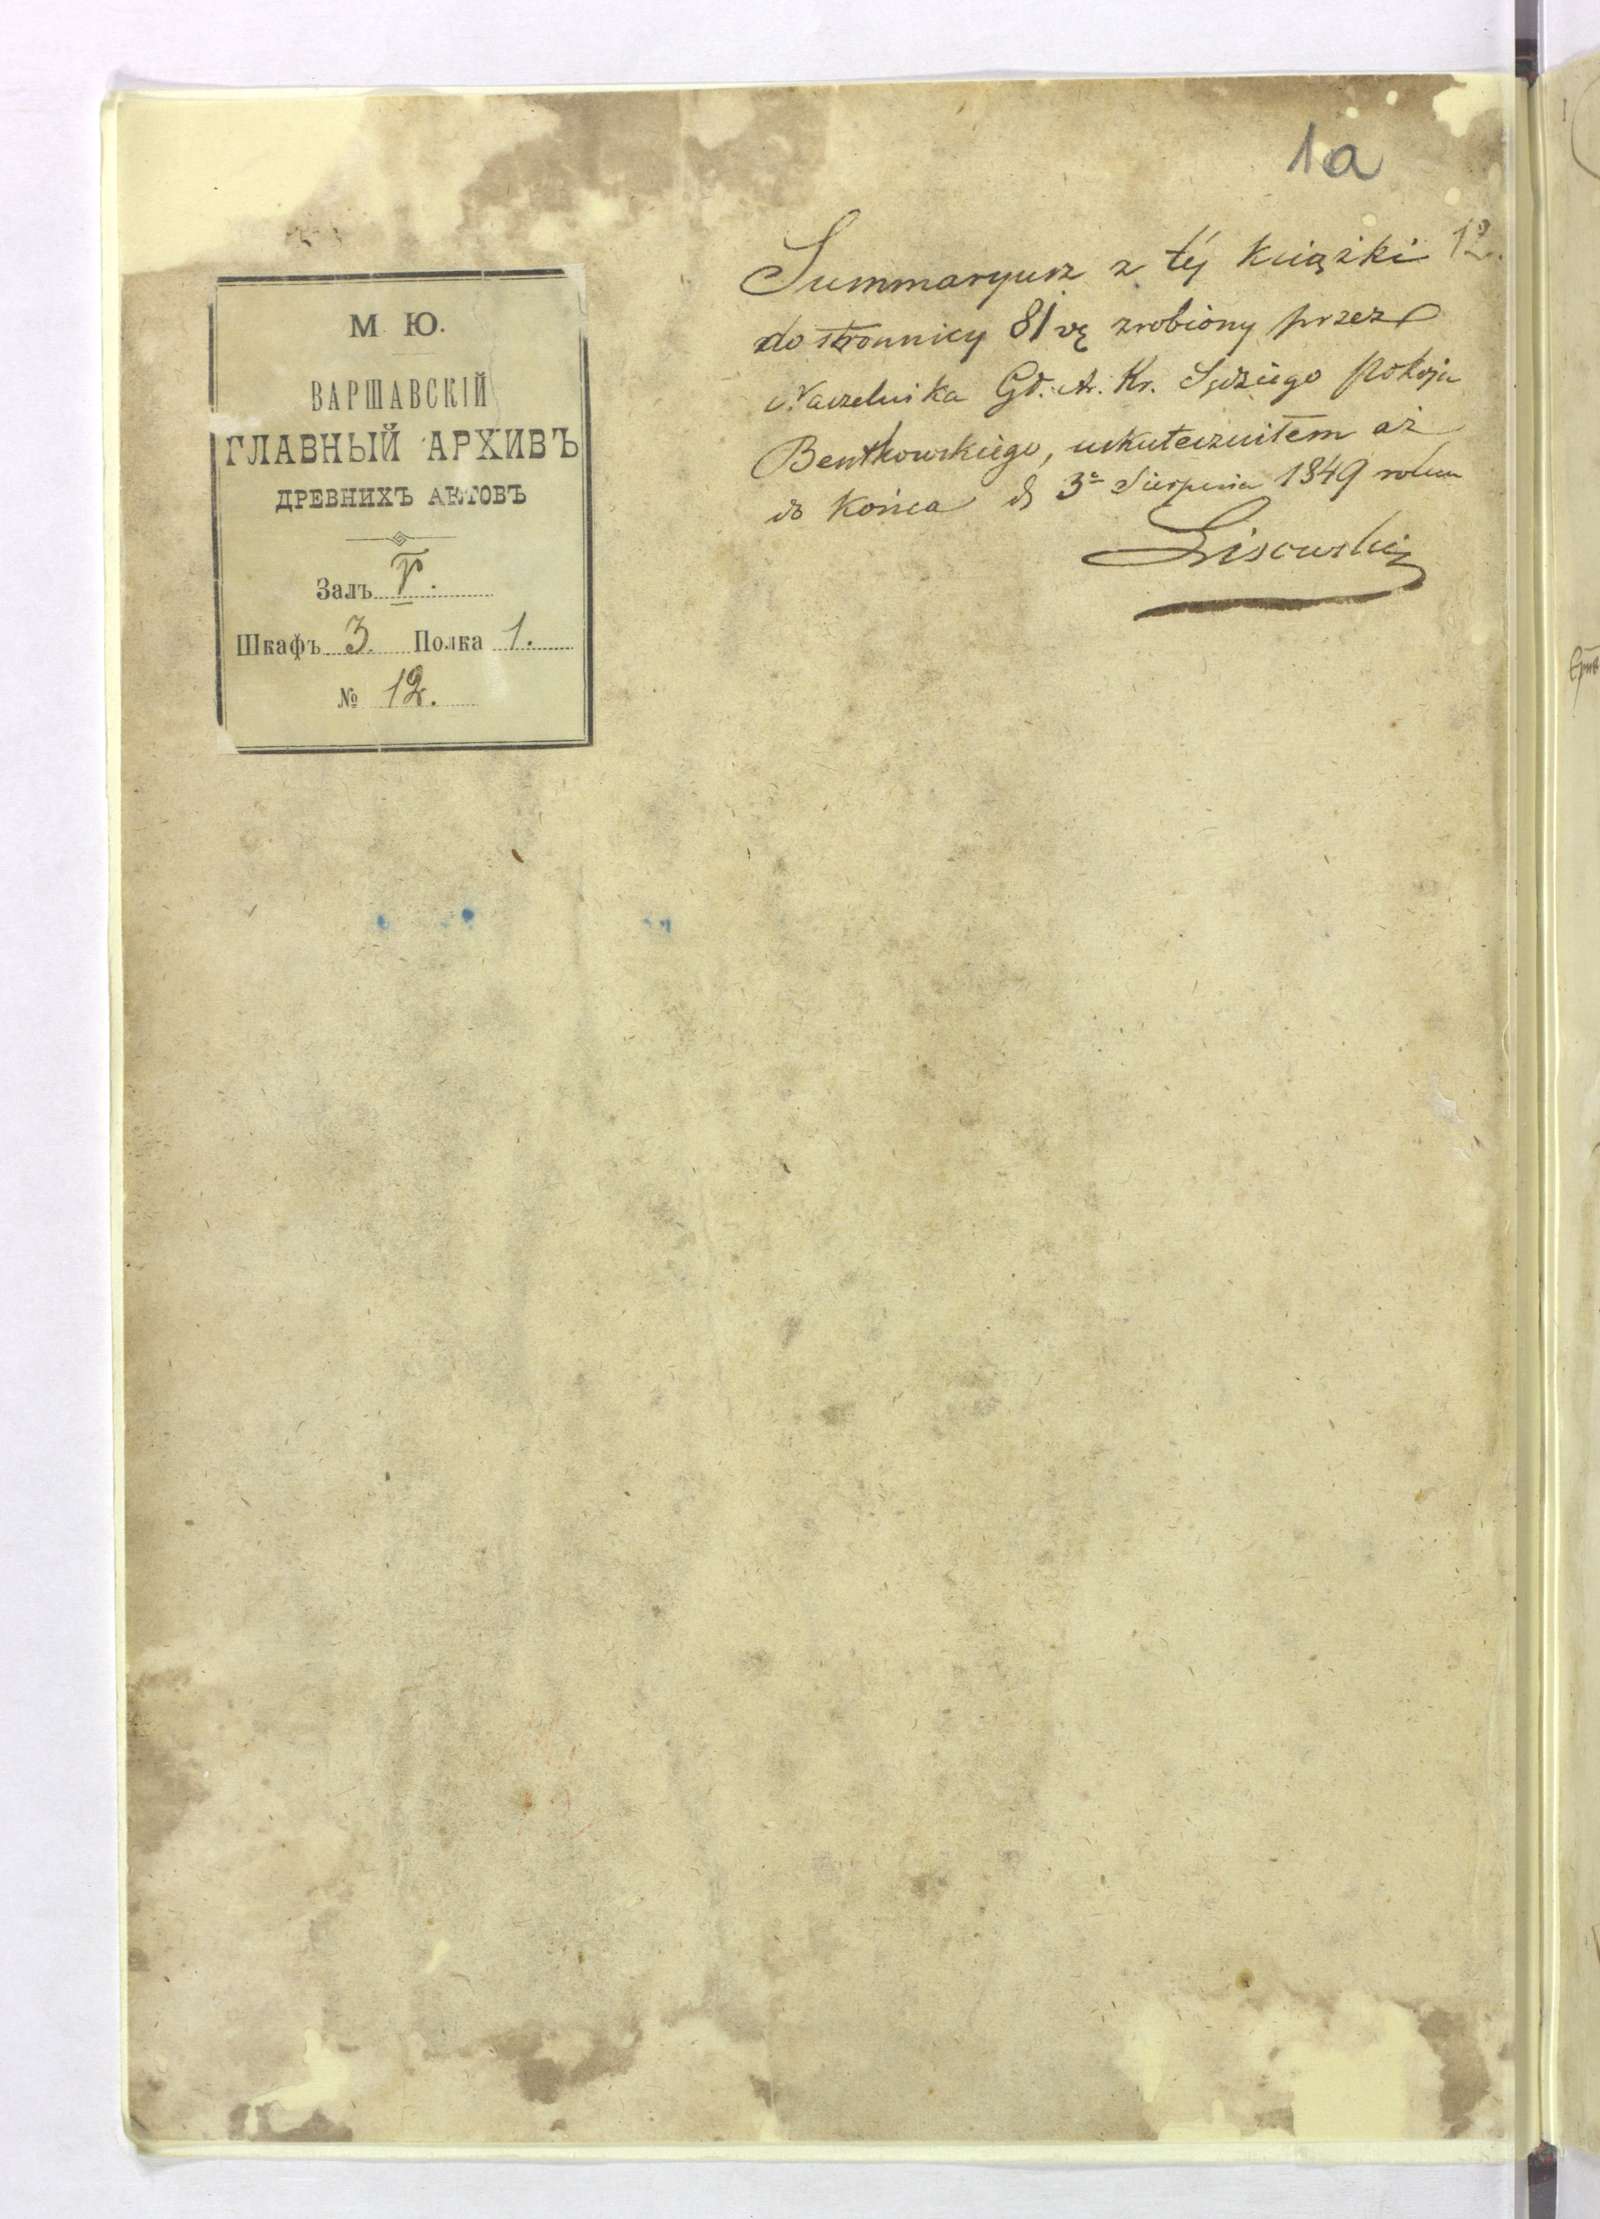 1a
12.
Summaryusz z téj książki
do stronnicy 81 vę zrobiony przez
Naczelnika Gł. A. Kr. Sędziego Pokoju
Bentkowskiego, uskuteczniłem aż
do końca d 3º Sierpnia 1849 roku
Lisowski
М. Ю.
ВАРШАВСКІЙ
ГЛАВНЫЙ АРХИВЪ
ДРЕВНИХЪ АКТОВЪ
Залъ V.
Шкафъ 3. Полка 1.
№ 12.